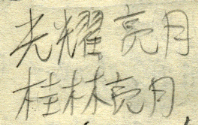 光耀亮月
桂林亮月